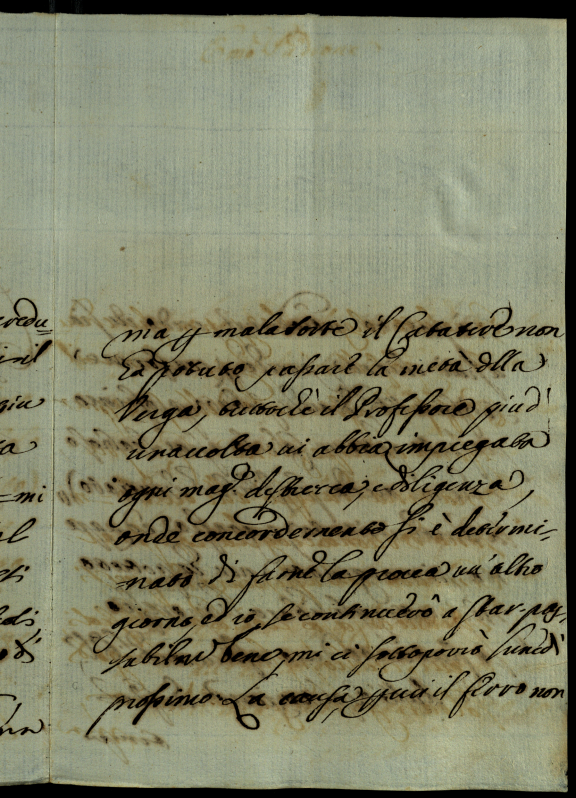 nia p mala sorte il Catatere non
ha potuto passare la metà della
Verga, tuttoché il Professore piud'
una volta vi abbia impiegata
ogni magr. destrezza, e diligenza,
onde concordemente si è determi=
=nato di farne la prova un'altro
giorno, ed io, se continuerò a star pas,
sabilme bene, mi ci sottoporrò lunedì
prossimo. La causa, p cui il ferro non